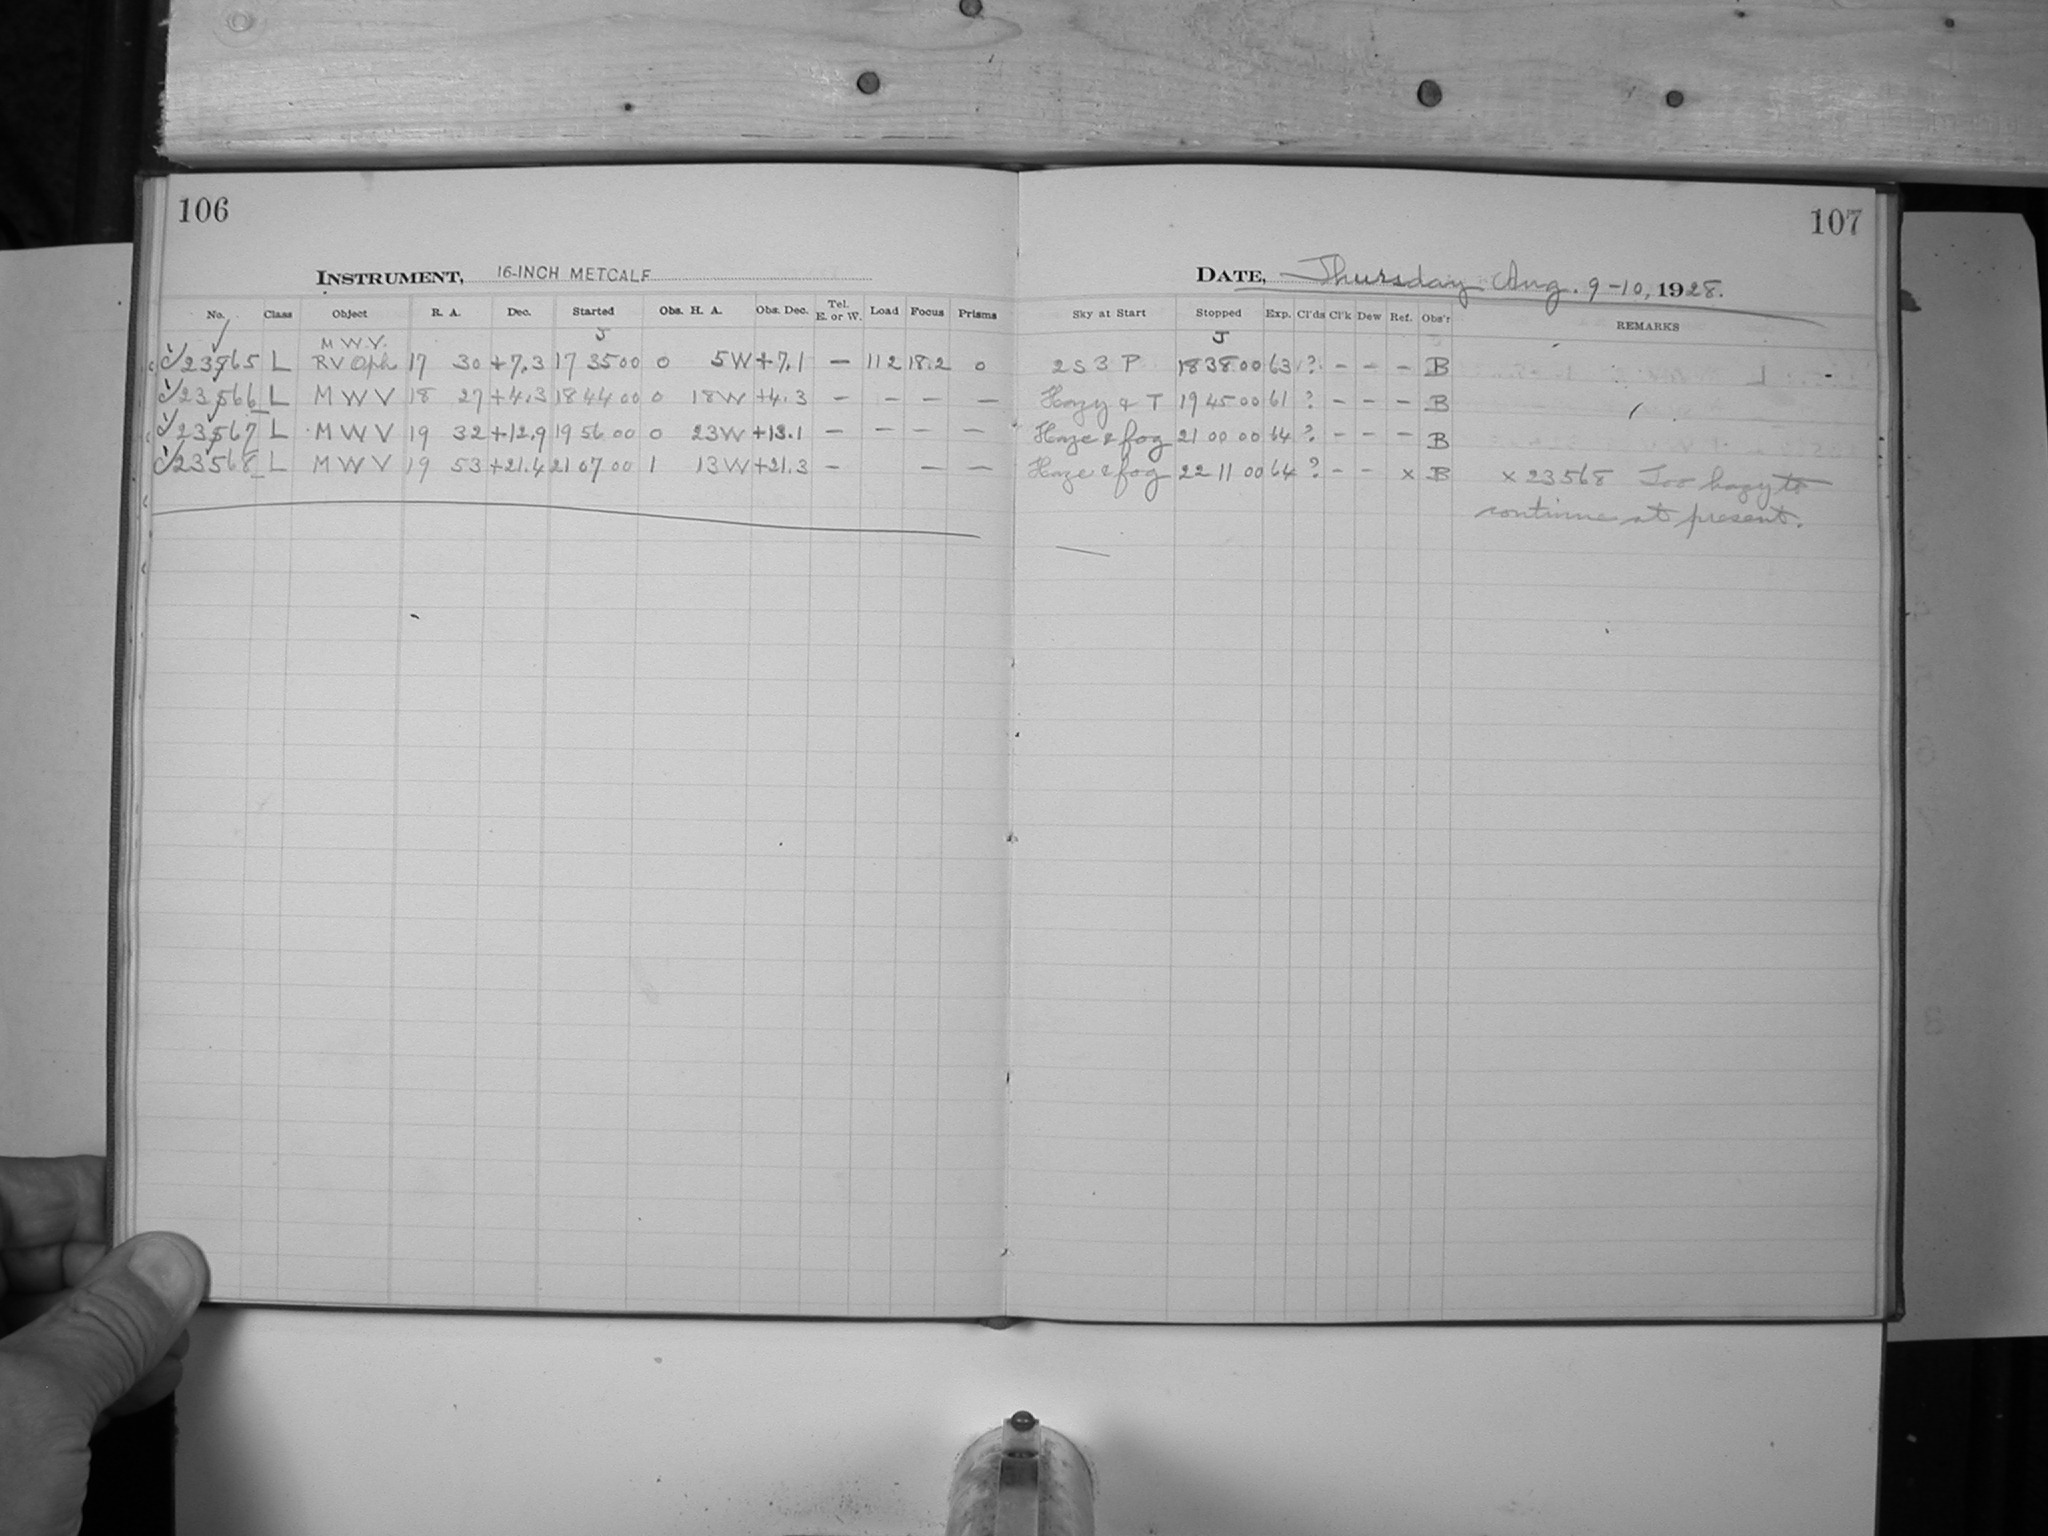 106
INSTRUMENT, 16-INCH METCALF
No. Class Object R. A. Dec. Started Obs. H. A. Obs. Dec. Tel. E. or W. Load Focus Prisms
J
M W V.
23565 L RV Oph 17 30 +7.3 17 35 00 0 5W +7.1 — 112 18.2 0
23566 L M W V 18 27 +4.3 18 44 00 0 18W +4.3 — — — —
23567 L M W V 19 32 +12.9 19 56 00 0 23W +13.1 — — — —
23568 L M W V 19 53 +21.4 21 07 00 1 13W +21.3 — — —
107
DATE, Thursday Aug. 9-10, 1928.
Sky at Start Stopped Exp. Cl'ds Cl'k Dew Ref. Obs'r REMARKS
J
2 S 3 P 18 38 00 63 ? – – – B
Hazy & T 19 45 00 61 ? – – – B
Haze & fog 21 00 00 64 ? – – – B
Haze & fog 22 11 00 64 ? – – x B x 23568 Too hazy to
continue at present.